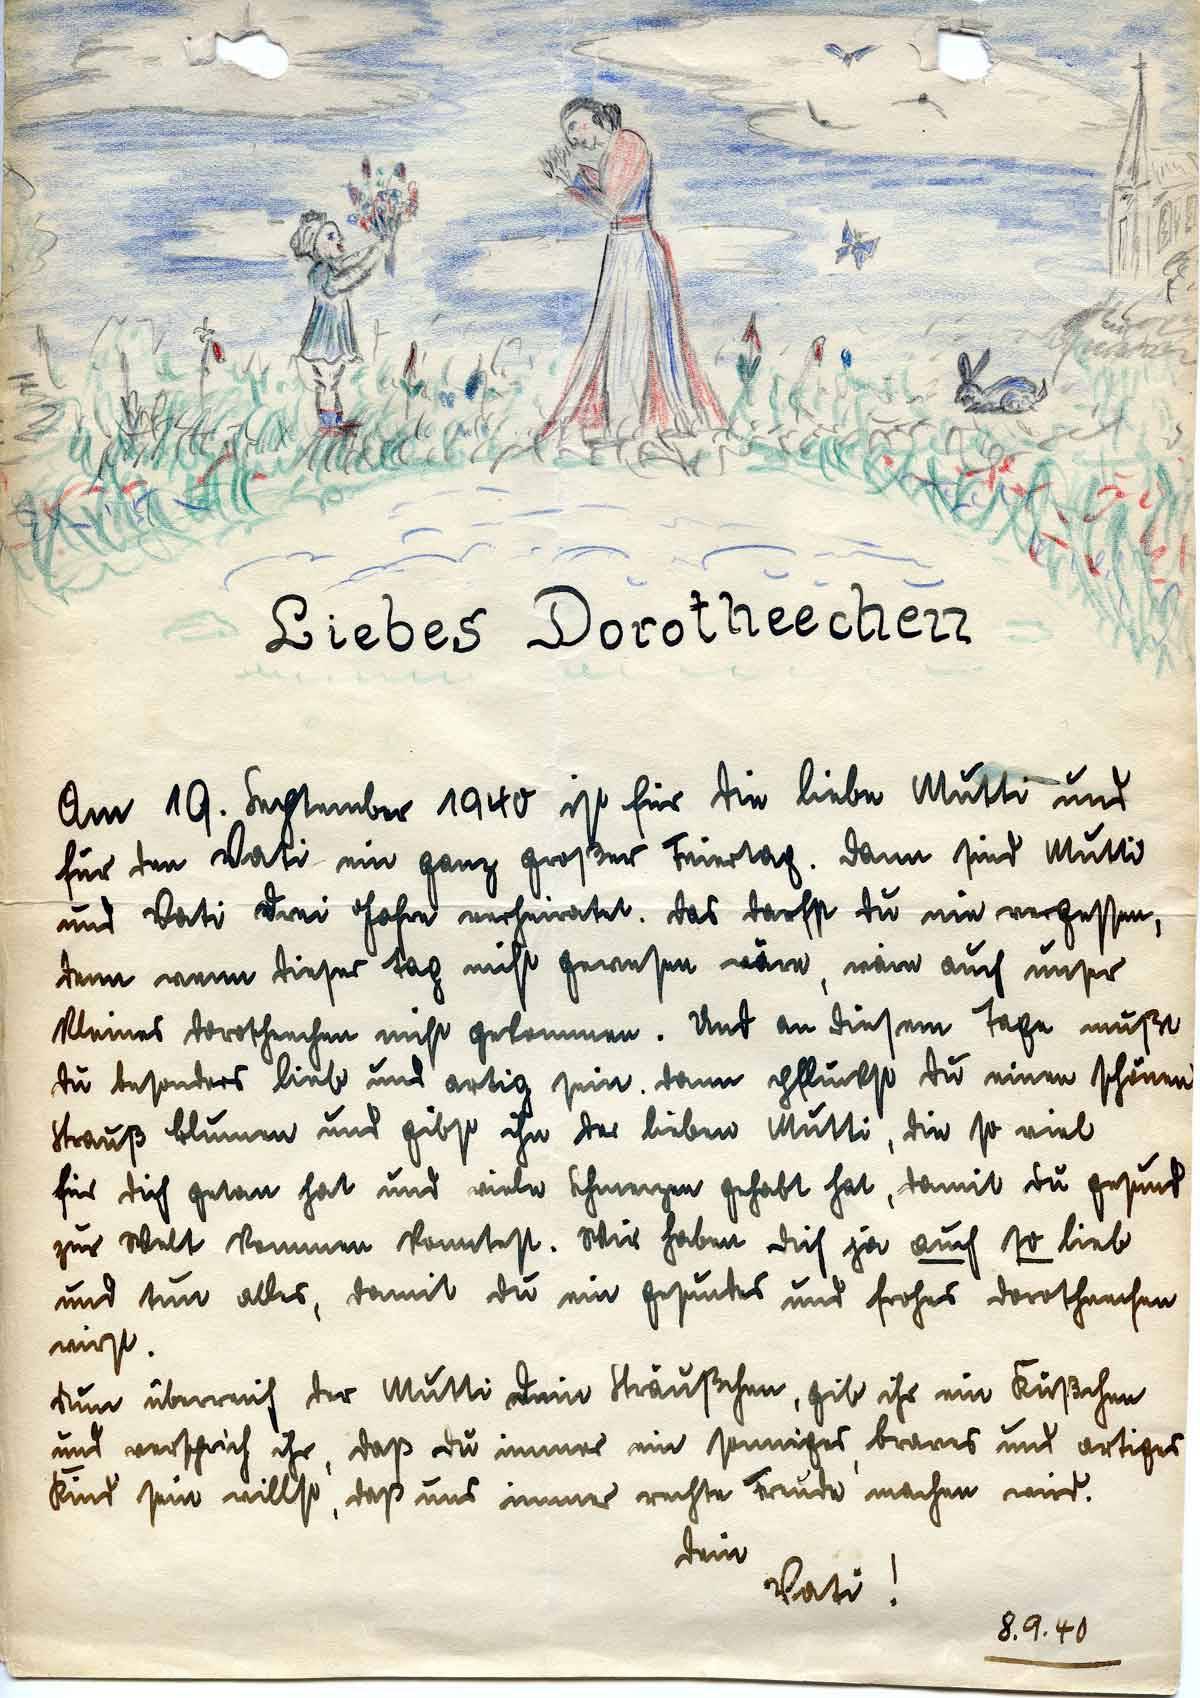 Liebes Dorotheechen
Am 19. September 1940 ist für die liebe Mutti und
für den Vati ein ganz großer Feiertag. Dann sind Mutti
und Vati drei Jahre verheiratet. Das darfst Du nie vergessen,
denn wenn dieser Tag nicht gewesen wäre, wäre auch unser
kleines Dorotheechen nicht gekommen. Und an diesem Tage mußt
Du besonders lieb und artig sein. Dann pflückst Du einen schönen
Strauß Blumen und gibst ihn der lieben Mutti, die so viel
für Dich getan hat und viele Schmerzen gehabt hat, damit Du gesund
zur Welt kommen konntest. Wir haben Dich ja auch so lieb
und tun alles, damit Du ein gesundes und frohes Dorotheechen
wirst.
Nun überreich der Mutti Dein Sträußchen, gib ihr ein Küßchen
und versprich ihr, daß Du immer ein sonniges, braves und artiges
Kind sein willst, daß uns immer rechte Freude machen wird.
Dein
Vati!
8.9.40